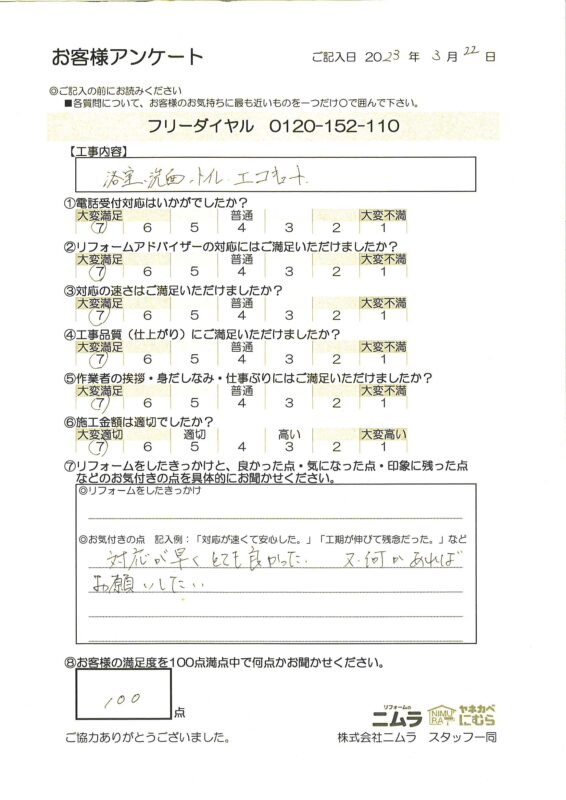 お客様アンケート
ご記入日 2023 年 3 月 22 日
◎ご記入の前にお読みください
■各質問について、お客様のお気持ちに最も近いものを一つだけ○で囲んで下さい。
フリーダイヤル 0120-152-110
【工事内容】
浴室、洗面、トイレ、エコキュート
①電話受付対応はいかがでしたか？
大変満足 普通 大変不満
7 6 5 4 3 2 1
②リフォームアドバイザーの対応にはご満足いただけましたか？
大変満足 普通 大変不満
7 6 5 4 3 2 1
③対応の速さはご満足いただけましたか？
大変満足 普通 大変不満
7 6 5 4 3 2 1
④工事品質（仕上がり）にご満足いただけましたか？
大変満足 普通 大変不満
7 6 5 4 3 2 1
⑤作業者の挨拶・身だしなみ・仕事ぶりにはご満足いただけましたか？
大変満足 普通 大変不満
7 6 5 4 3 2 1
⑥施工金額は適切でしたか？
大変適切 適切 高い 大変高い
7 6 5 4 3 2 1
⑦リフォームをしたきっかけと、良かった点・気になった点・印象に残った点
などのお気付きの点を具体的にお聞かせください。
◎リフォームをしたきっかけ
◎お気付きの点 記入例：「対応が速くて安心した。」「工期が伸びて残念だった。」など
対応が早くとても良かった. 又、何かあれば
お願いしたい
⑧お客様の満足度を100点満点中で何点かお聞かせください。
100 点
リフォームの ニムラ NIMURA ヤネカベ にむら
ご協力ありがとうございました。 株式会社ニムラ スタッフ一同